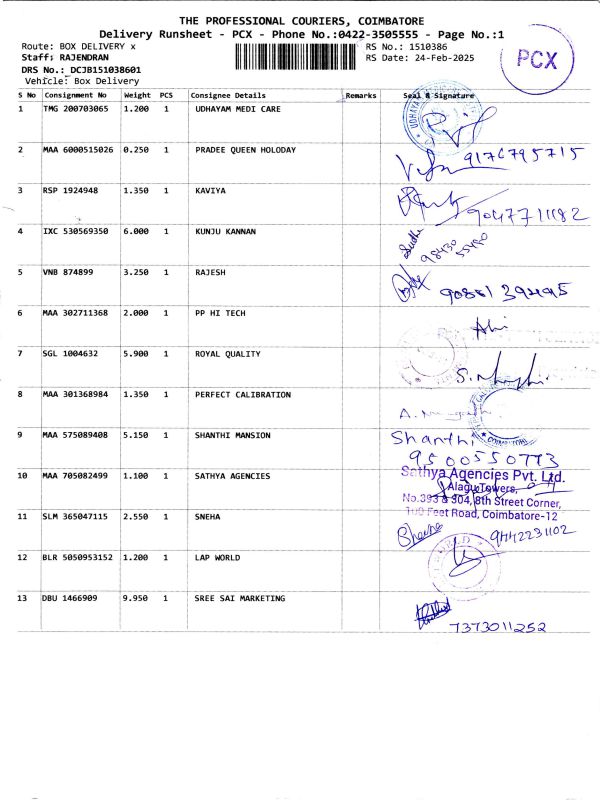 THE PROFESSIONAL COURIERS, COIMBATORE
Delivery Runsheet - PCX - Phone No.:0422-3505555 - Page No.:1
Route: BOX DELIVERY x
RS No.: 1510386
Staff: RAJENDRAN
RS Date: 24-Feb-2025
DRS No.: DCJB151038601
Vehicle: Box Delivery
PCX
S No Consignment No Weight PCS Consignee Details Remarks Seal & Signature
1 TMG 200703065 1.200 1 UDHAYAM MEDI CARE
2 MAA 6000515026 0.250 1 PRADEE QUEEN HOLODAY
9176795715
3 RSP 1924948 1.350 1 KAVIYA
9047711182
4 IXC 530569350 6.000 1 KUNJU KANNAN
98430
55490
5 VNB 874899 3.250 1 RAJESH
90881 394495
6 MAA 302711368 2.000 1 PP HI TECH
7 SGL 1004632 5.900 1 ROYAL QUALITY
8 MAA 301368984 1.350 1 PERFECT CALIBRATION
9 MAA 575089408 5.150 1 SHANTHI MANSION Shanthi
9500550773
10 MAA 705082499 1.100 1 SATHYA AGENCIES
Sathya Agencies Pvt. Ltd.
Alagu Towers,
No.393 & 304, 8th Street Corner,
100 Feet Road, Coimbatore-12
11 SLM 365047115 2.550 1 SNEHA
9442231102
12 BLR 5050953152 1.200 1 LAP WORLD
13 DBU 1466909 9.950 1 SREE SAI MARKETING
7373011252